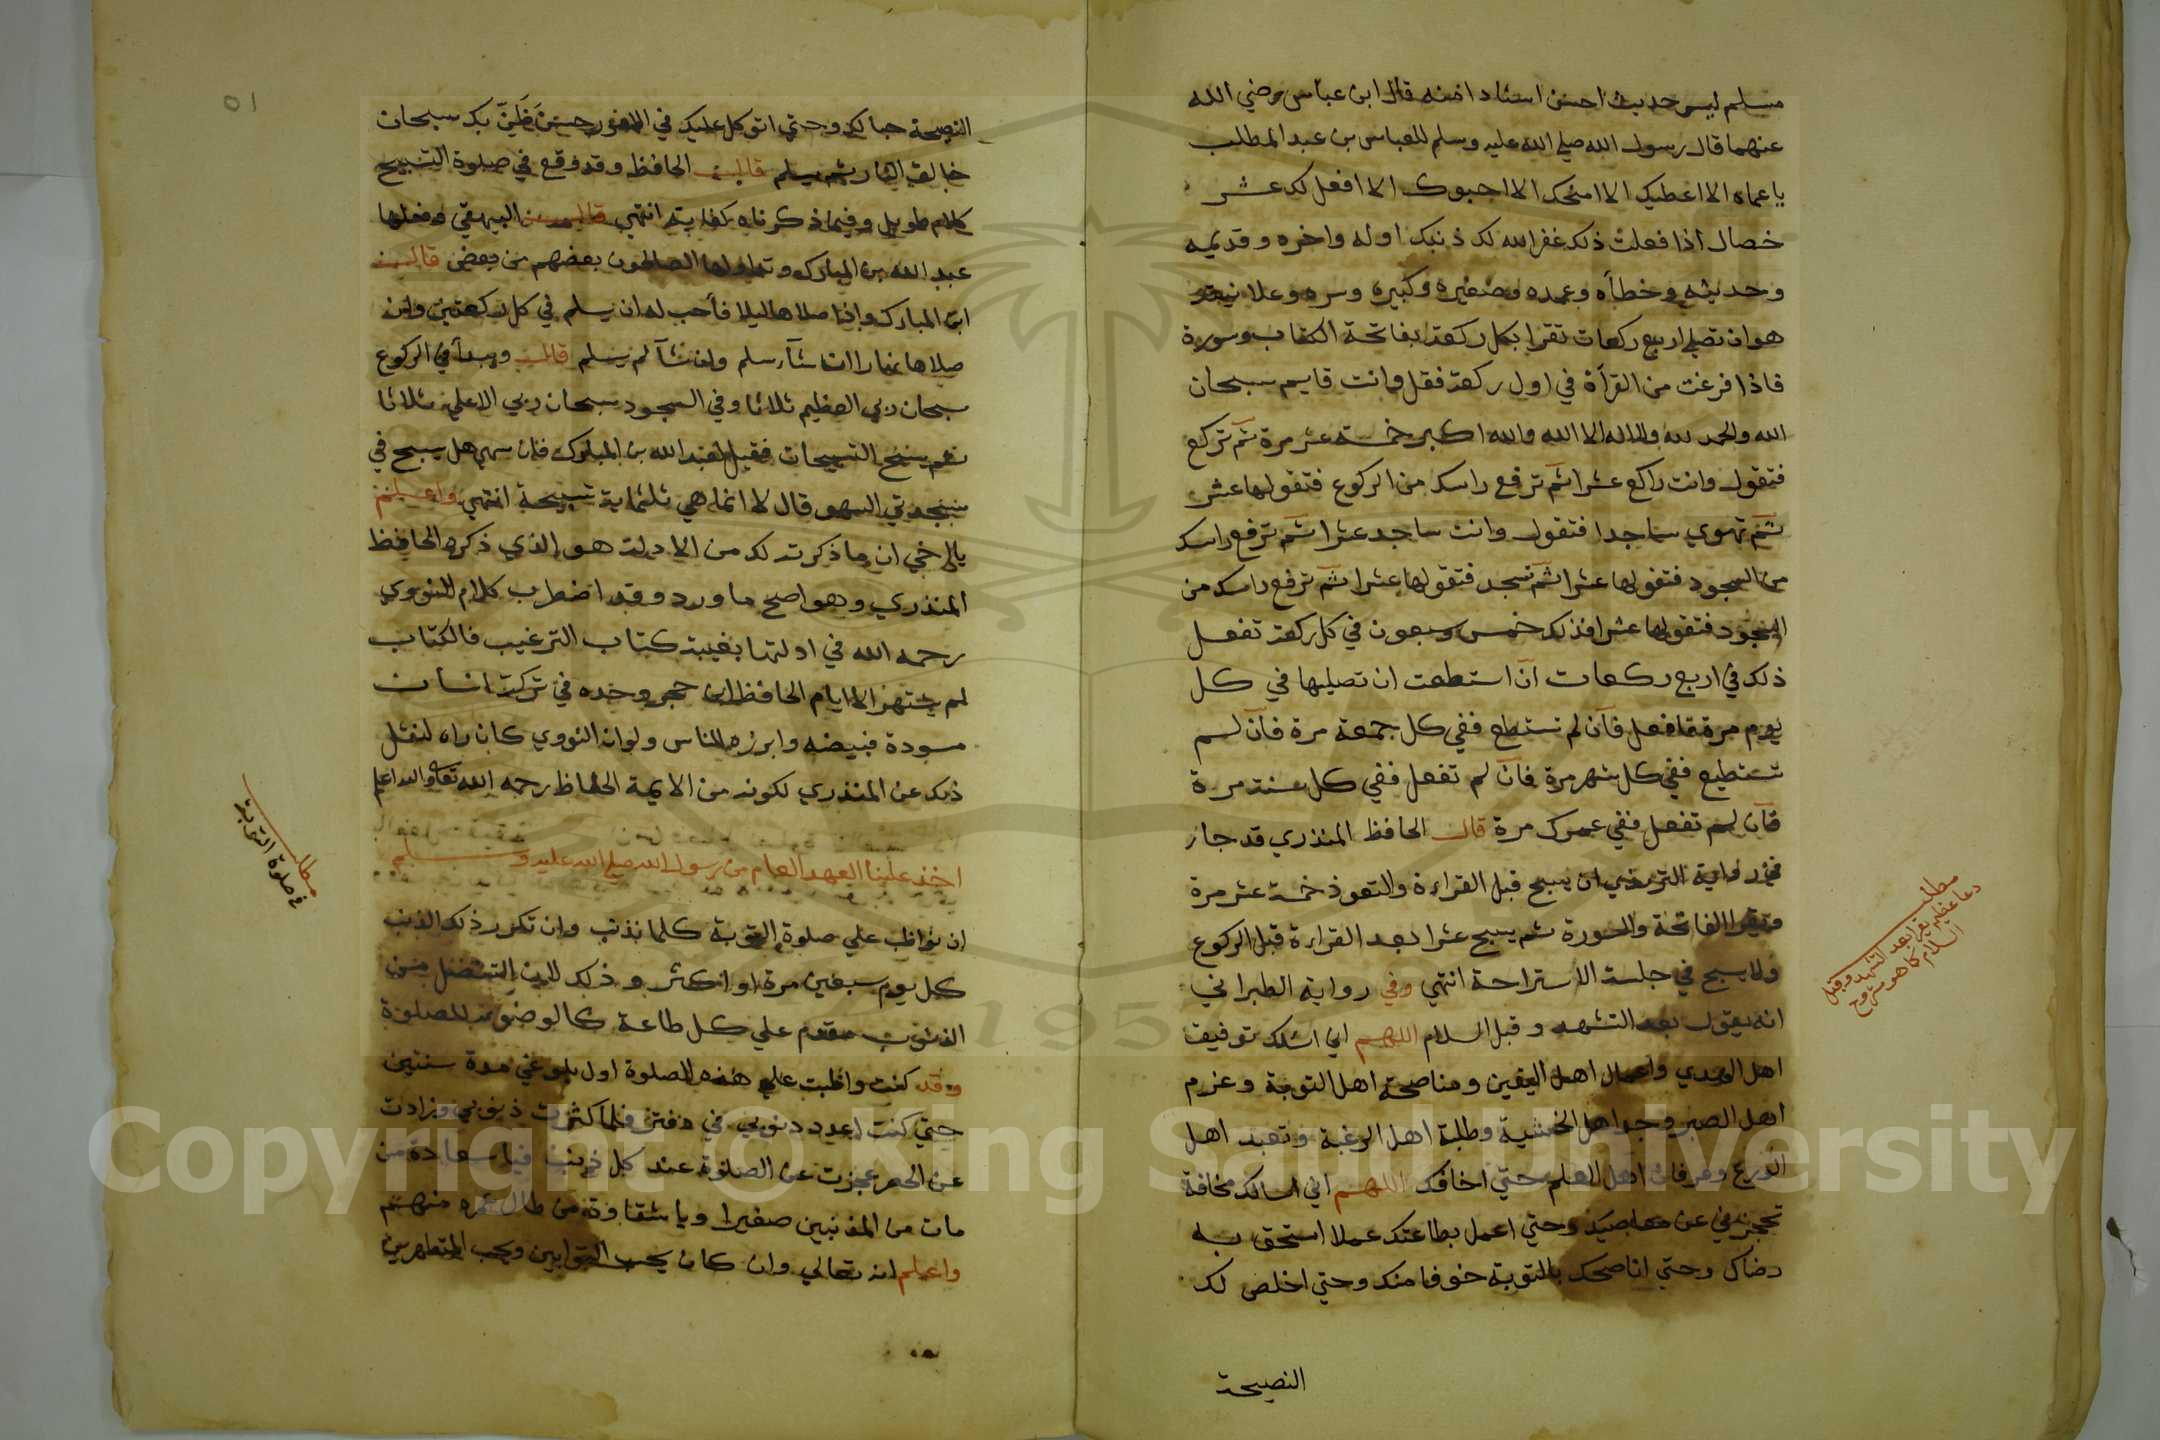 مسلم ليس حديث احسن اسنادا منه قال ابن عباس رضي الله
عنهما قال رسول الله صلي الله عليه وسلم للعباس بن عبد المطلب
يا عماه الا اعطيك الا امنحك الا احبوك الا افعل لك عشر
خصال اذا فعلت ذلك غفر الله لك ذنبك اوله واخره وقديمه
وحديثه وخطأه وعمده وصغيره وكبيره وسره وعلانيته
هو ان تصلي اربع ركعات تقرا بكل ركعة بفاتحة الكتاب وسورة
فاذا فرغت من القرأة في اول ركعة فقل وانت قايم سبحان
الله والحمد لله ولا اله الا الله والله اكبر خمسة عشر مرة ثم تركع
فتقول وانت راكع عشرا ثم ترفع راسك من الركوع فتقولها عشر
ثم تهوي ساجدا فتقول وانت ساجد عشرا ثم ترفع راسك
من السجود فتقولها عشرا ثم تسجد فتقولها عشرا ثم ترفع راسك من
السجود فتقولها عشرا فذلك خمس وسبعون في كل ركعة تفعل
ذلك في اربع ركعات ان استطعت ان تصليها في كل
يوم مرة فافعل فان لم تستطع ففي كل جمعة مرة فان لم
تستطيع ففي كل شهر مرة فان لم تفعل ففي كل سنة مرة
فان لم تفعل ففي عمرك مرة قال الحافظ المنذري قد جاز
في رواية الترمذي ان يسبح قبل القراءة والتعوذ خمسة عشر مرة
ويقرا الفاتحة والسورة ثم يسبح عشرا بعد القراءة قبل الركوع
ولا يسبح في جلسة الاستراحة انتهي وفي رواية الطبراني
انه يقول بعد التشهد وقبل السلام اللهم اني اسئلك توفيق
اهل الهدي واعمال اهل اليقين ومناصحة اهل التوبة وعزم
اهل الصبر وجد اهل الخشية وطلبة اهل الرغبة وتعبد اهل
الورع وعرفان اهل العلم حتي اخافك اللهم اني اسالك مخافة
تحجزني عن معاصيك وحتي اعمل بطاعتك عملا استحق به
رضاك وحتي اناصحك بالتوبة خوفا منك وحتي اخلص لك
النصيحة
مطلب
دعا عظيم يقرا بعد التشهد وقبل
السلام كما هو مشروح
٥١
النصيحة حبا لك وحتي اتوكل عليك في الامور حسن ظني بك سبحان
خالق النار ثم يسلم قال الحافظ وقد وقع في صلوة التسبيح
كلام طويل وفيما ذكرناه كفاية انتهي قال البيهقي وفعلها
عبد الله بن المبارك وتداولها الصالحون بعضهم من بعض قال
ابن المبارك واذا صلاها ليلا فأحب له ان يسلم في كل ركعتين وان
صلاها نهارا ان شآء سلم وان شآ لم يسلم قال ويبدأ في الركوع
سبحان ربي العظيم ثلاثا وفي السجود سبحان ربي الاعلي ثلاثا
ثم يسبح التسبيحات فقيل لعبد الله بن المبارك فان سهي هل يسبح في
سجدتي السهو قال لا انما هي ثلثماية تسبيحة انتهي واعلم
يا اخي ان ما ذكرته لك من الادلة هو الذي ذكره الحافظ
المنذري وهو اصح ما ورد وقد اضطرب كلام النووي
رحمه الله في ادلتها بغيبة كتاب الترغيب فالكتاب
لم يشتهر الا ايام الحافظ ابن حجر وجده في تركة انسان
مسودة فبيضه وابرزه للناس ولو ان النووي كان راه لنقل
ذلك عن المنذري لكونه من الايمة الحفاظ رحمه الله تعالي والله اعلم
اخذ علينا العهد العام من رسول الله صلي الله عليه وسلم
ان نواظب علي صلوة التوبة كلما نذنب وان تكرر ذلك الذنب
كل يوم سبعين مرة او اكثر وذلك لان التنصل من
الذنوب مقدم علي كل طاعة كالوضوء للصلوة
وقد كنت واظبت علي هذه الصلوة اول بلوغي مدة سنتين
حتي كنت اعدد ذنوبي في دفتر فلما كثرت ذنوبي وزادت
عن الحصر عجزت عن الصلوة عند كل ذنب فيا سعادة من
مات من المذنبين صغيرا ويا شقاوة من طال عمره منهم
واعلم انه تعالي وان كان يحب التوابين ويحب المتطهرين
مطلب
في صلوة التوبة
Copyright © King Saud University
195